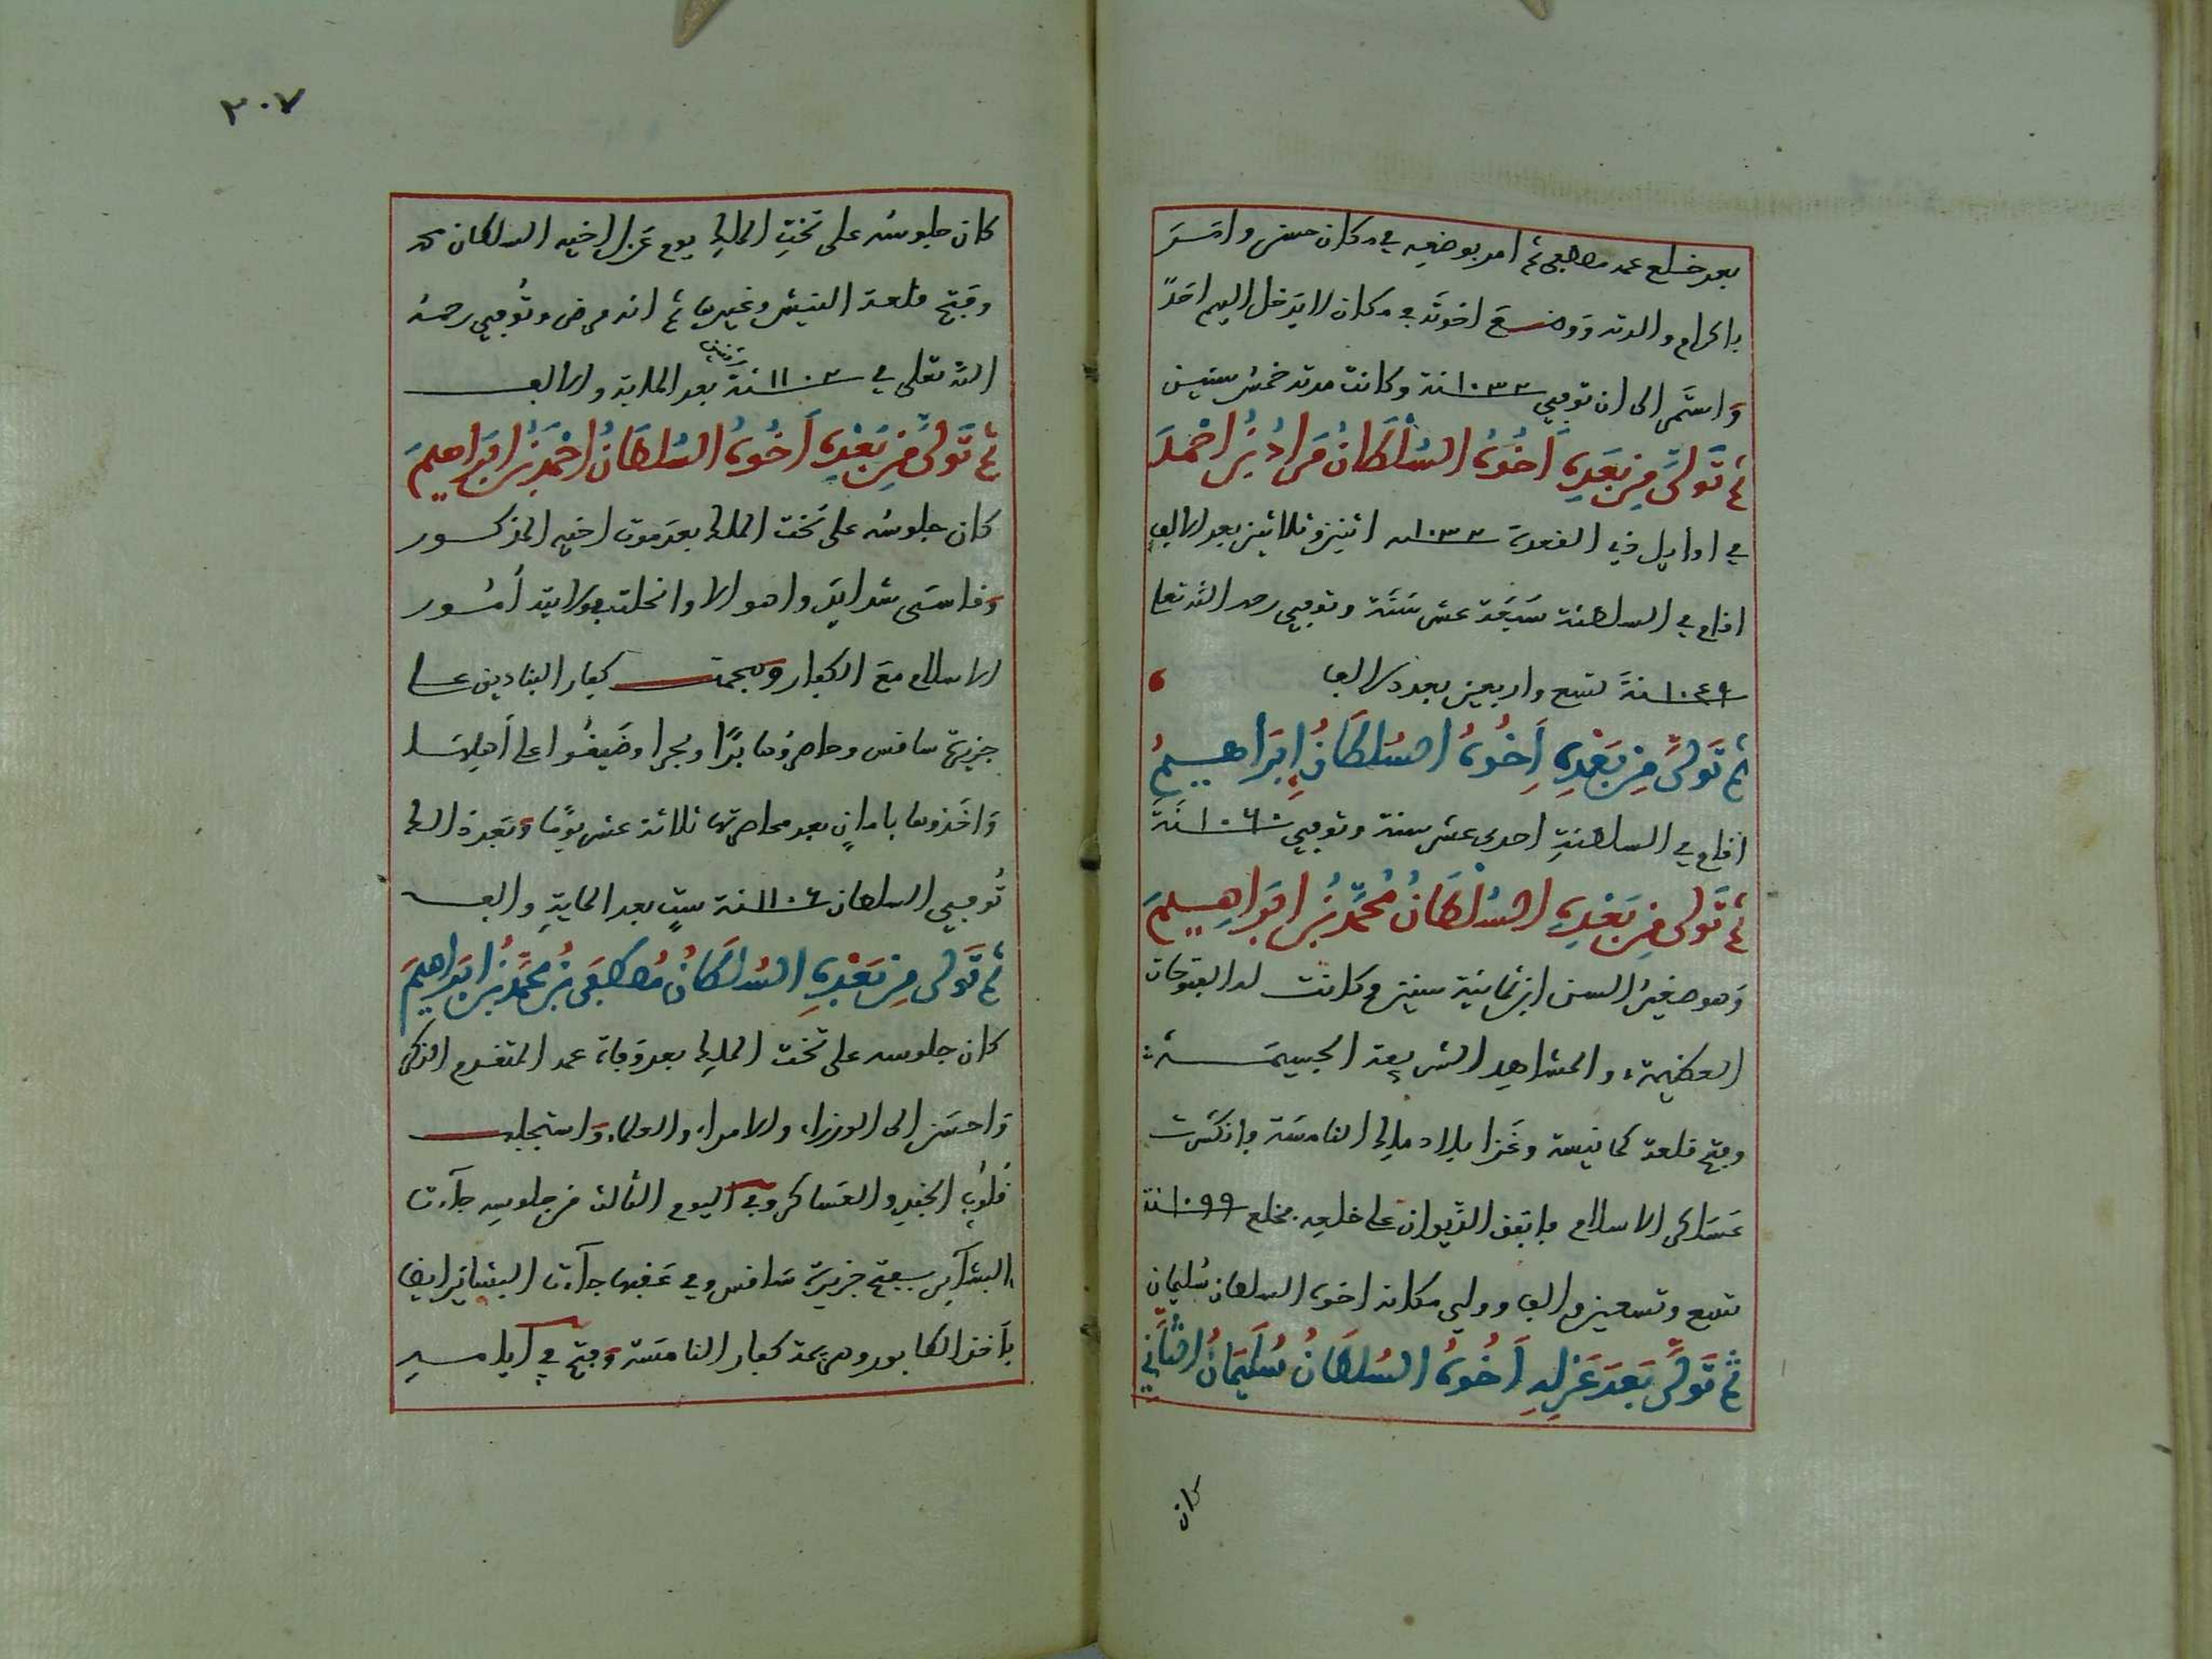 بعد خلع عمه مصطفى ثم امر بوضعه في مكان حسن وامر
باكرام والدته ووضع اخوته في مكان لا يدخل اليهم احدٌ
واستمر الى ان توفي ١٠٣٢ سنة وكانت مدته خمس سنين
ثم تولى من بعده اخوه السلطان مراد بن احمد
في اوايل ذي القعدة ١٠٣٢ سنه اثنين وثلاثين بعد الالف
اقام في السلطنة سبعة عشر سنة وتوفي رحمه الله تعا
١٠٤٩ سنة تسع واربعين بعد الالف
ثم تولى من بعده اخوه السلطان ابراهيم
اقام في السلطنة احدى عشر سنة وتوفي ١٠٦٠ سنة
ثم تولى من بعده السلطان محمد بن ابراهيم
وهو صغير السن ابن ثمانية سنين وكانت له الفتوحات
العظيمة والمشاهد الشريفة الجسيمة
وفتح قلعة كمانيسة وغزا بلاد ملك النامسة فانكسرت
عساكر الاسلام فاتفق الديوان على خلعه فخلع ١٠٩٩ سنة
تسع وتسعين والف وولي مكانه اخوه السلطان سليمان
ثم تولى بعد عزله اخوه السلطان سليمان الثاني
كان
٢٠٧
كان جلوسه على تخت الملك يوم عزل اخيه السلطان محمد
وفتح قلعة النيش وغيرها ثم انه مرض وتوفي رحمه
الله تعلى في ١١٠٢ سنة بعد الماية والالف
اثنين
ثم تولى من بعده اخوه السلطان احمد بن ابراهيم
كان جلوسه على تخت الملك بعد موت اخيه المذكور
وقاسى شدايد واهوالا وانحلت بولايته امور
الاسلام مع الكفار وهجمت كفار البنادين على
جزيرة ساقس وحاصروها برًا وبحرا وضيقوا على اهلها
واخذوها بامان بعد محاصرتها ثلاثة عشر يومًا وبعد ذالك
توفي السلطان ١١٠٦ سنة ستٍ بعد الماية والف
ثم تولى من بعده السلطان مصطفى بن محمد بن ابراهيم
كان جلوسه على تخت الملك بعد وفاة عمه المتقدم الذكر
واحسن الى الوزراء والامراء والعلماء واستجلب
قلوب الجند والعساكر وفي اليوم الثالث من جلوسه جاءت
البشآير بفتح جزيرة ساقس وفي عقبها جاءت البشاير ايضا
باخذ الكابور وهزيمة كفار النامسة وفتح في ايامه